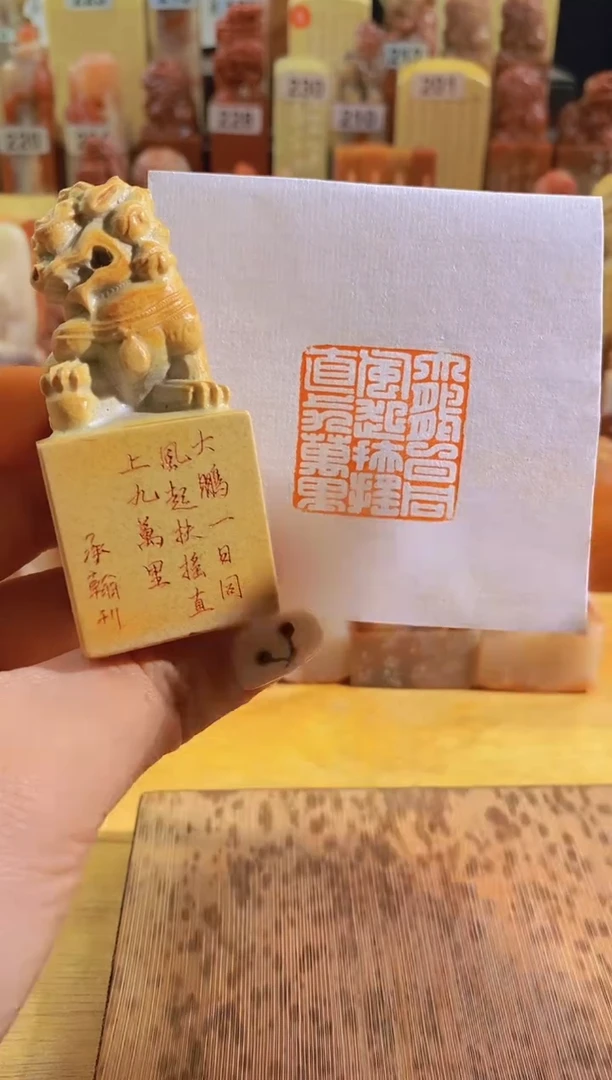 230
201
228
210
大鵬一日同
風起扶搖直
上九萬里
承翰刊
大鵬一日同
風起扶搖
直上九萬里